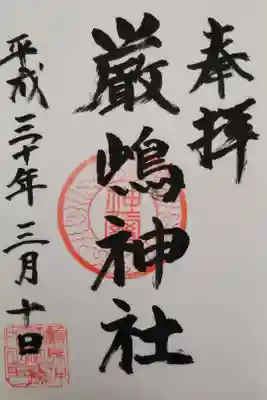 奉拝
厳嶋神社
平成三十年三月十日